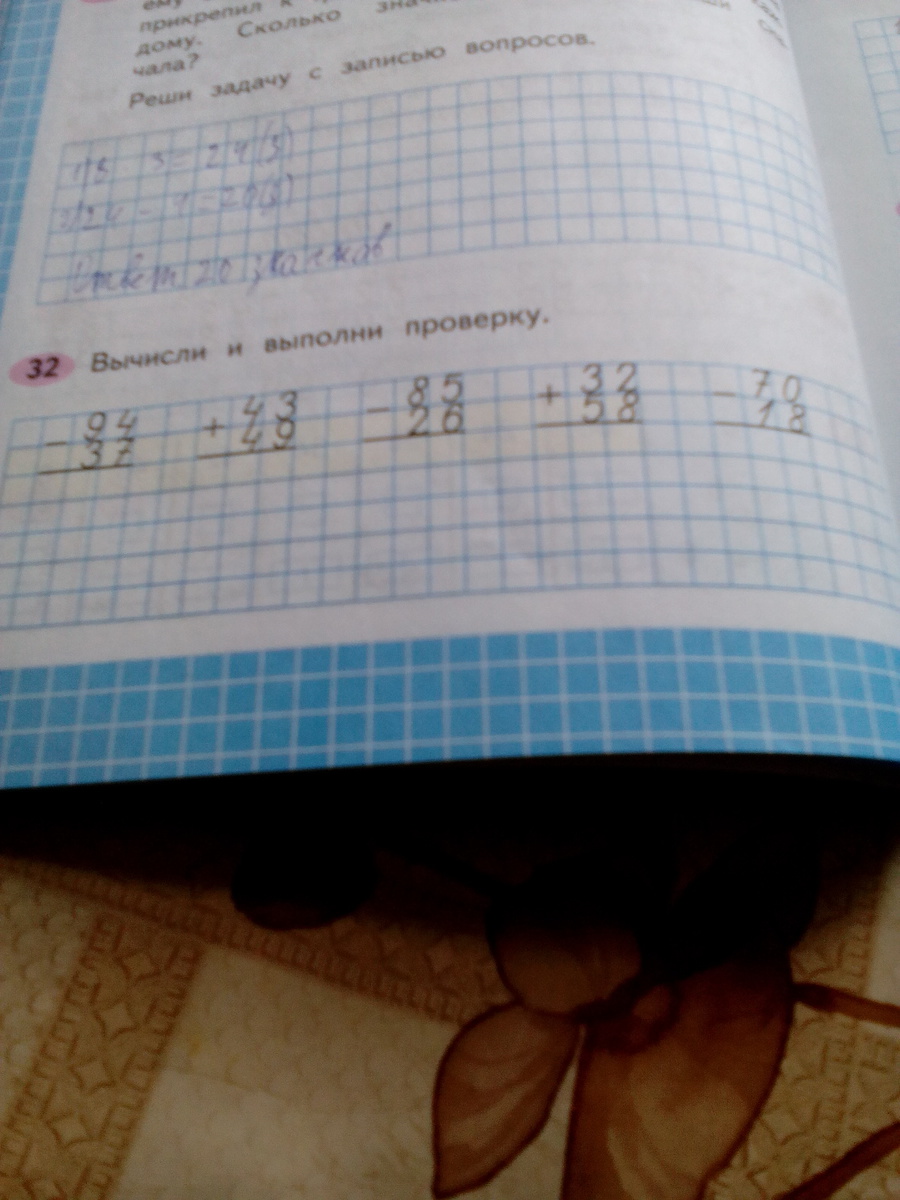 ему
прикрепил к
дому. Сколько
чала?
Реши задачу с записью вопросов.
3 = 24 (з)
24 - 4 = 20 (з)
Ответ 20 значков
32 Вычисли и выполни проверку.
- 94 + 43 - 85 + 32 - 70
37 49 26 58 18